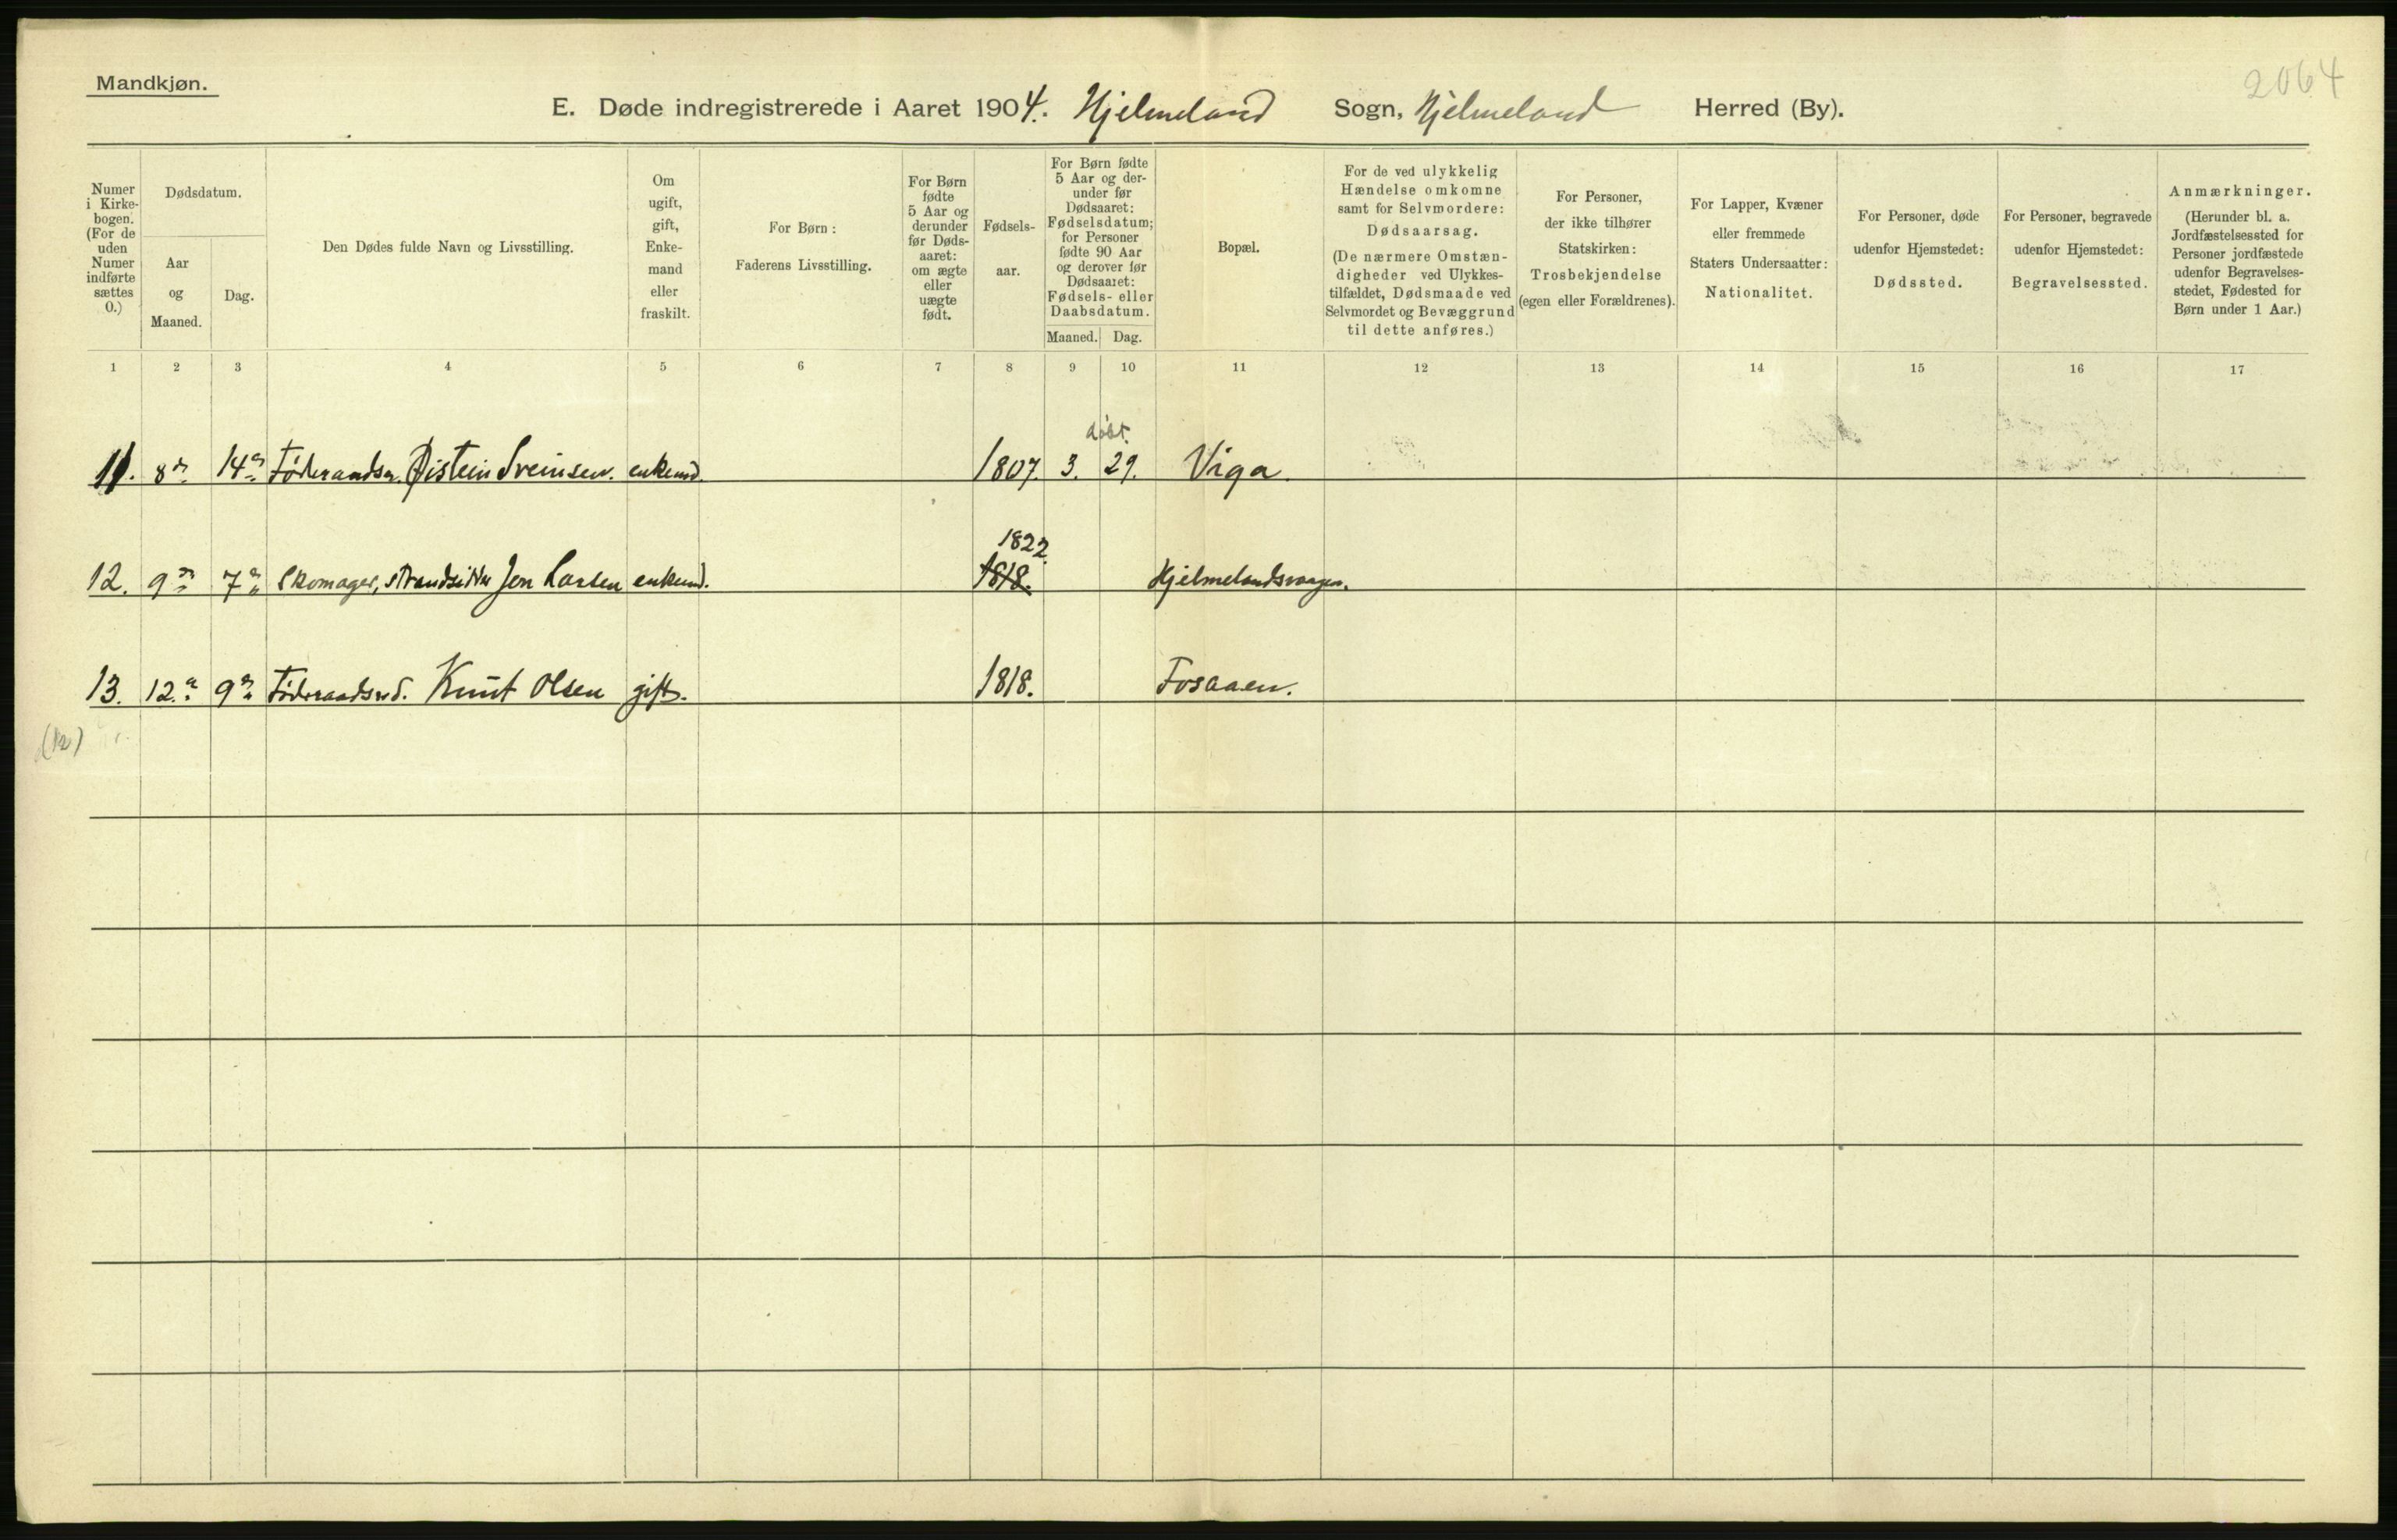 Mandkjøn.
2064
E. Døde indregistrerede i Aaret 1904. Hjelmeland Sogn, Hjelmeland Herred (By).
Numer i Kirkebogen. (For de uden Numer indførte sættes 0.)
Dødsdatum.
Aar og Maaned.
Dag.
Den Dødes fulde Navn og Livsstilling.
Om ugift, gift, Enkemand eller fraskilt.
For Børn:
Faderens Livsstilling.
For Børn fødte 5 Aar og derunder før Dødsaaret: om ægte eller uægte født.
Fødselsaar.
For Børn fødte 5 Aar og derunder før Dødsaaret: Fødselsdatum; for Personer fødte 90 Aar og derover før Dødsaaret: Fødsels- eller Daabsdatum.
Maaned. Dag.
Bopæl.
For de ved ulykkelig Hændelse omkomne samt for Selvmordere: Dødsaarsag. (De nærmere Omstændigheder ved Ulykkestilfældet, Dødsmaade ved Selvmordet og Bevæggrund til dette anføres.)
For Personer, der ikke tilhører Statskirken: Trosbekjendelse (egen eller Forældrenes).
For Lapper, Kvæner eller fremmede Staters Undersaatter: Nationalitet.
For Personer, døde udenfor Hjemstedet: Dødssted.
For Personer, begravede udenfor Hjemstedet: Begravelsessted.
Anmærkninger. (Herunder bl. a. Jordfæstelsessted for Personer jordfæstede udenfor Begravelsesstedet, Fødested for Børn under 1 Aar.)
1 2 3 4 5 6 7 8 9 10 11 12 13 14 15 16 17
døbt.
11. 8 14 Øistein Sveinsen. enkemd. 1807. 3. 29. Viga.
1822
12. 9 7 Skomager, strandsidder Jon Larsen enkemd. 1818. Hjelmelandsvaagen.
13. 12. 9 Knut Olsen gift. 1818. Fosaaen.
(12)